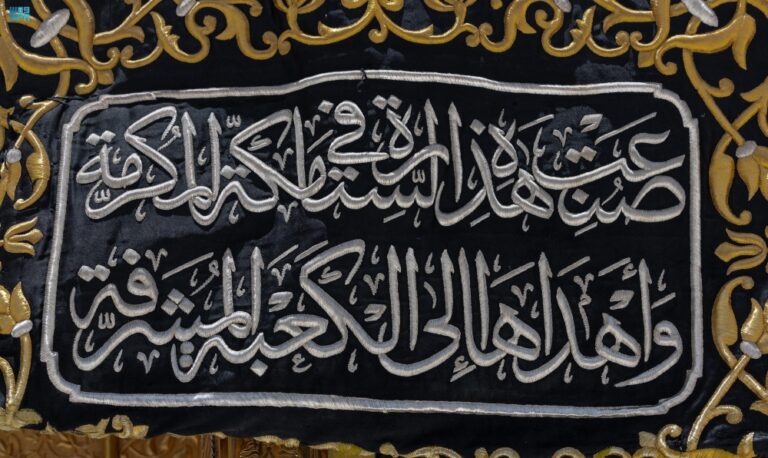 صُنِعَتْ هَذِهِ السِّتَارَة في مَكَّة المُكَرمَة
وَأَهْدَاهَا إِلى الكَعْبَة المُشَرَّفَة
واس